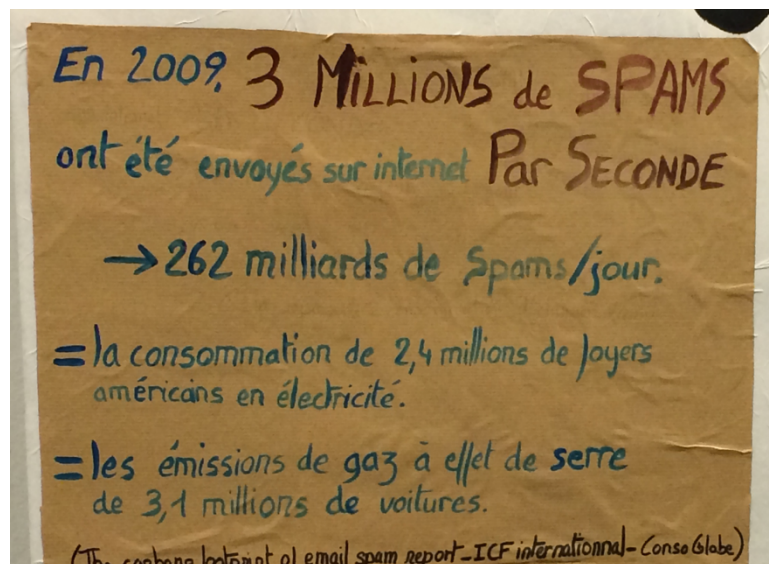 En 2009, 3 MILLIONS de SPAMS
ont été envoyés sur internet Par SECONDE
→ 262 milliards de Spams/jour.
= la consommation de 2,4 millions de foyers
américains en électricité.
= les émissions de gaz à effet de serre
de 3,1 millions de voitures.
(The carbone footprint of email spam report - ICF internationnal - Conso Globe)